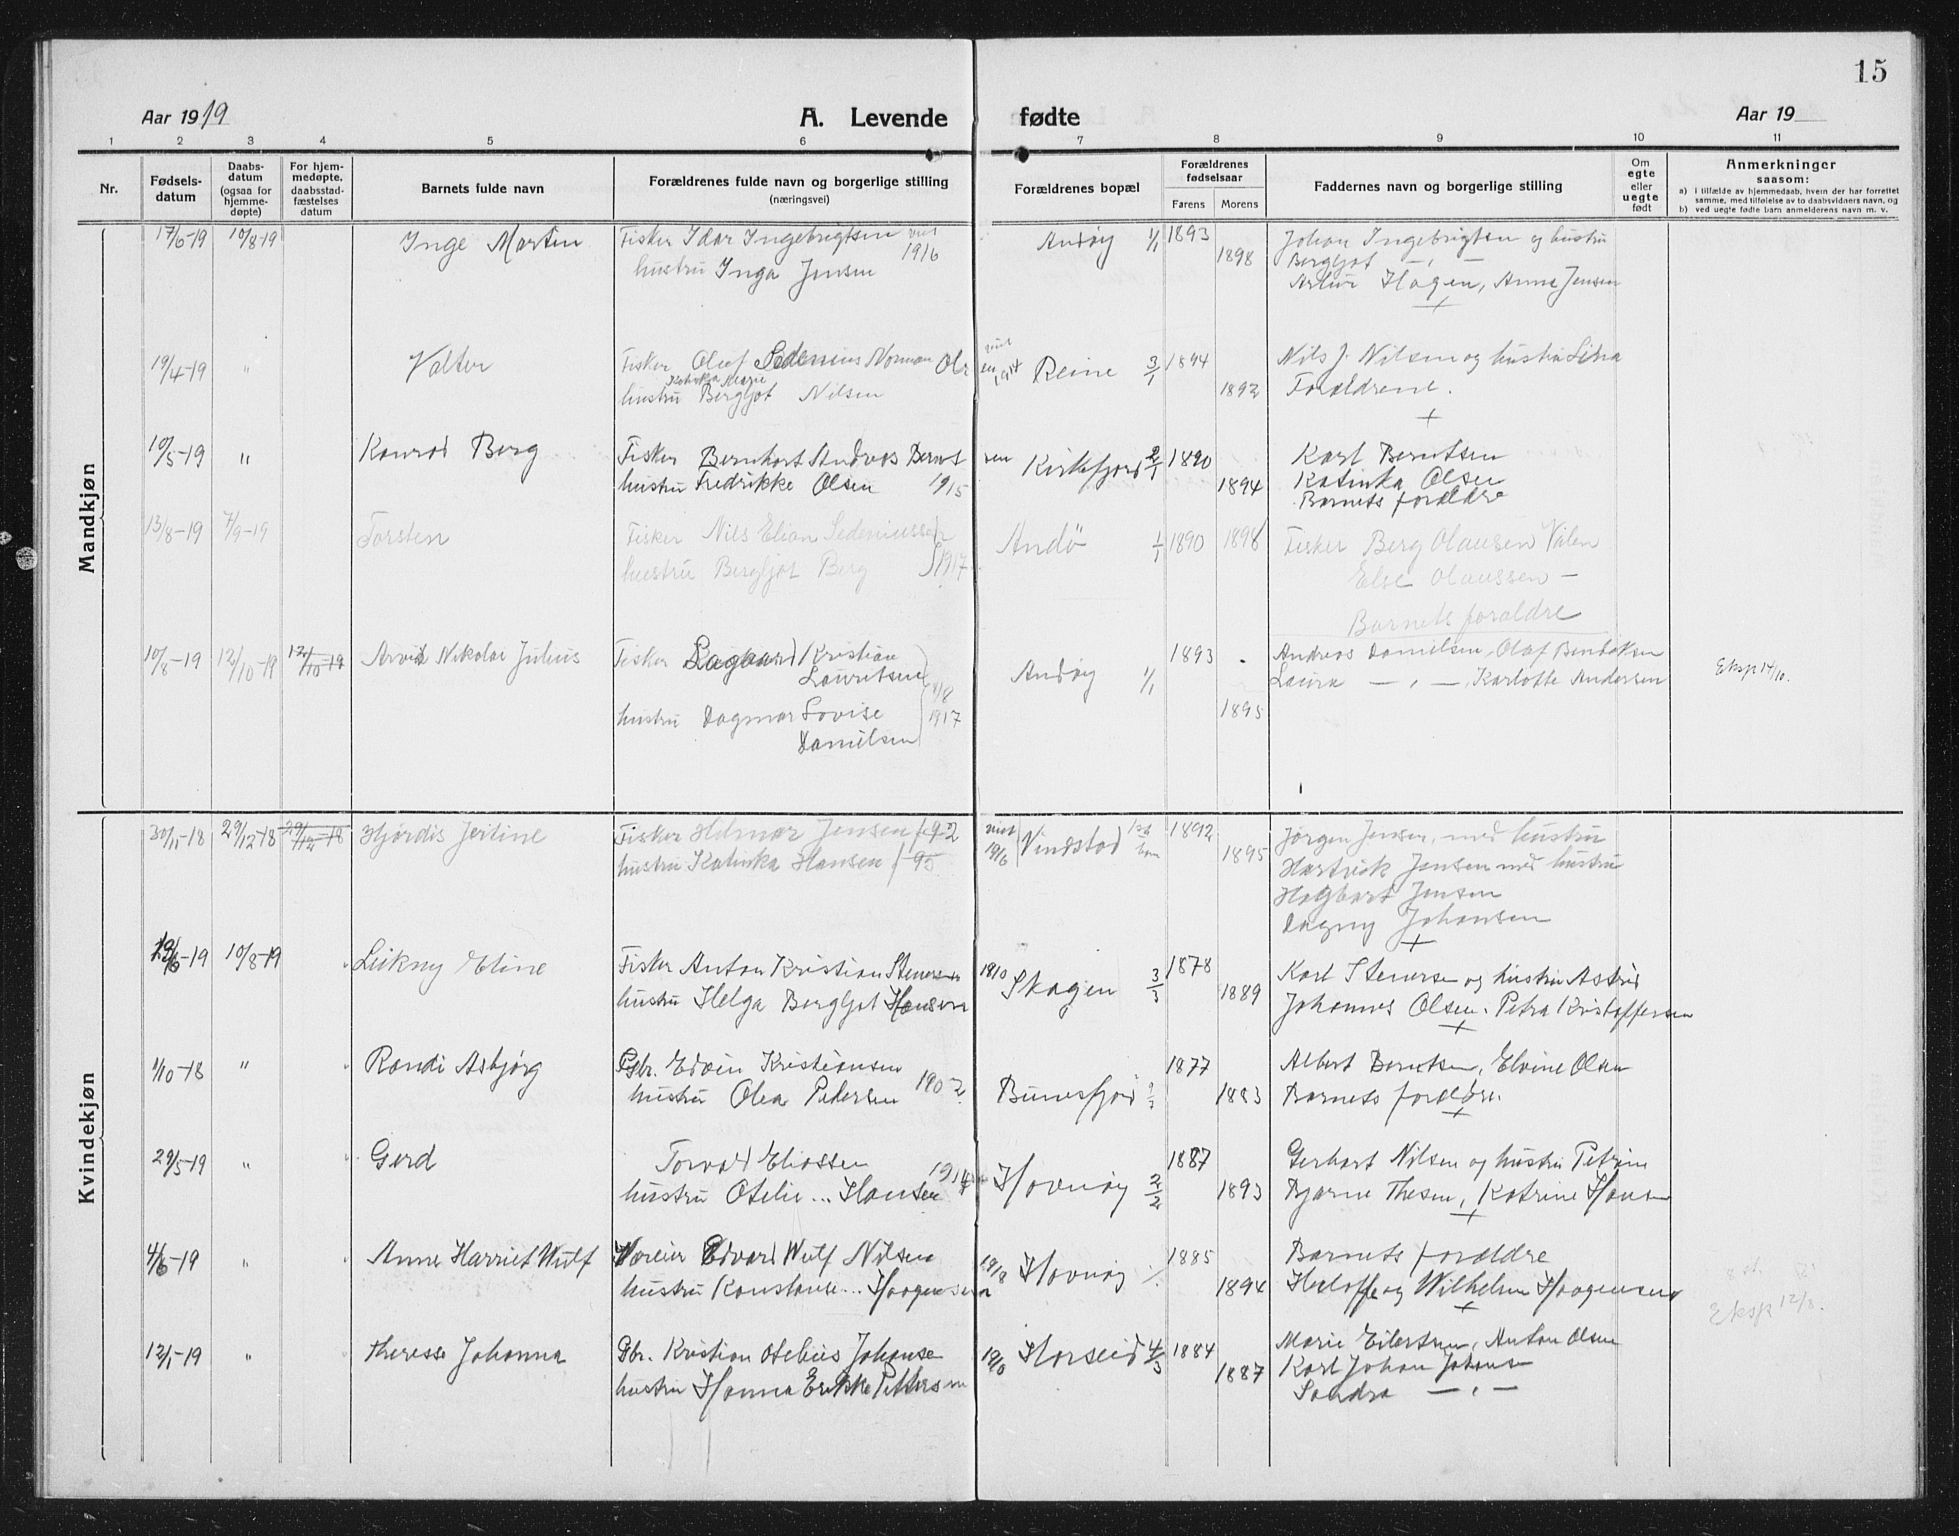 15
Aar 1919 A. Levende fødte Aar 19
1 2 3 4 5 6 7 8 9 10 11
Nr.
Fødsels-
datum
Daabs-
datum
(ogsaa for
hjemme-
døpte)
For hjem-
medøpte.
daabsstad-
fæstelses
datum
Barnets fulde navn
Forældrenes fulde navn og borgerlige stilling
(næringsvei)
Forældrenes bopæl
Forældrenes
fødselsaar
Farens Morens
Faddernes navn og borgerlige stilling
Om
egte
eller
uegte
født
Anmerkninger
saasom:
a) i tilfælde av hjemmedaab, hvem der har forrettet
samme, med tilføielse av to daabsvidners navn, og
b) ved uegte fødte barn anmelderens navn m. v.
Mandkjøn
17/6-19 10/8-19 Inge Martin Fisker Idar Ingebrigtsen viet Andøy 1/1 1893 Johan Ingebrigtsen og hustru
hustru Inga Jensen 1916 1898 Bergljot — " —
Artur Hagen, Anna Jensen
+
19/4-19 " Valter Fisker Oluf Sedenius Norman Olsen viet 1914 Reine 3/1 1894 Nils J. Nilsen og hustru Lina
Katinka Marie
hustru Bergljot Nilsen 1892 Forældrene.
+
10/5-19 " Konrad Berg Fisker Bernhart Andreas Berntsen Kirkefjord 2/1 1890 Karl Berntsen
hustru Fredrikke Olsen 1915 1894 Katinka Olsen
Barnets forældre
13/8-19 7/9-19 Torsten Fisker Nils Elian Sedeniussen Andø 1/1 1890 1898 Fisker Berg Olausen Valen
hustru Bergljot Berg 1917 Else Olaussen —
Barnets foraldre
10/8-19 12/10-19 12/10-19 Arvid Nikolai Julius Fisker Kristian Andøy 1/1 1893 Andreas Danielsen, Olaf Bendiksen
Lauritsen Laura — " —, Karlotte Andersen Eksp 14/10.
hustru Dagmar Lovise 1917 1895
Danielsen
Kvindekjøn
30/11-18 29/12-18 29/12-18 Hjørdis Jertine Fisker Hilmar Jensen f. 92 viet 1916 Vindstad 1st barn 1892 Jørgen Jensen, med hustru
hustru Katinka Hansen f 95 1895 Hartvik Jensen med hustru
Hagbart Jensen
Dagny Johansen
+
/6-19 10/8-19 Leikny Eline Fisker Anton Kristian Stenersen 1910 Skagen 3/3 1878 Karl Stenersen og hustru Astrid
hustru Helga Bergljot Hansen 1889 Johannes Olsen. Petra Kristoffersen
+
1/10-18 " Randi Asbjørg Gbr. Edvin Kristiansen Bunesfjord 1877 Albert Berntsen, Elvine Olsen
hustru Olea Petersen 1902 1883 Barnets forældre.
+
29/5-19 " Gerd Torvald Eliassen 1914 Havnøy 2/2 1887 Gerhart Nilsen og hustru Petrine
hustru Otelie ... Hansen 1893 Bjarne Thesen, Katrine Hansen
+
4/6-19 " Anne Harriet Wulf Edvard Wulf Nilsen 1918 Havnøy 1885 Barnets forældre
hustru Konstanse ... Haagensen 1894 og Wilhelm Haagensen
+ Eksp 12/8.
12/1-19 " Therese Johanna Gbr. Kristian Otelius Johansen 1910 Horseid 4/3 1884 Marie Eilertsen, Anton Olsen
hustru Hanna Erikke Pettersen 1887 Karl Johan Johansen
Sandra — " —